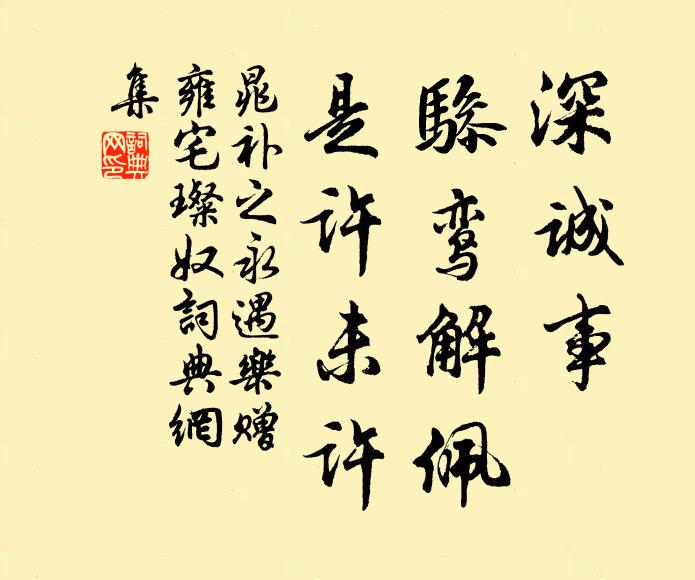 深诚事
驂鸾解佩
是许未许
晁补之永遇樂赠
雍宅璨奴詞典網
集
詞典网印